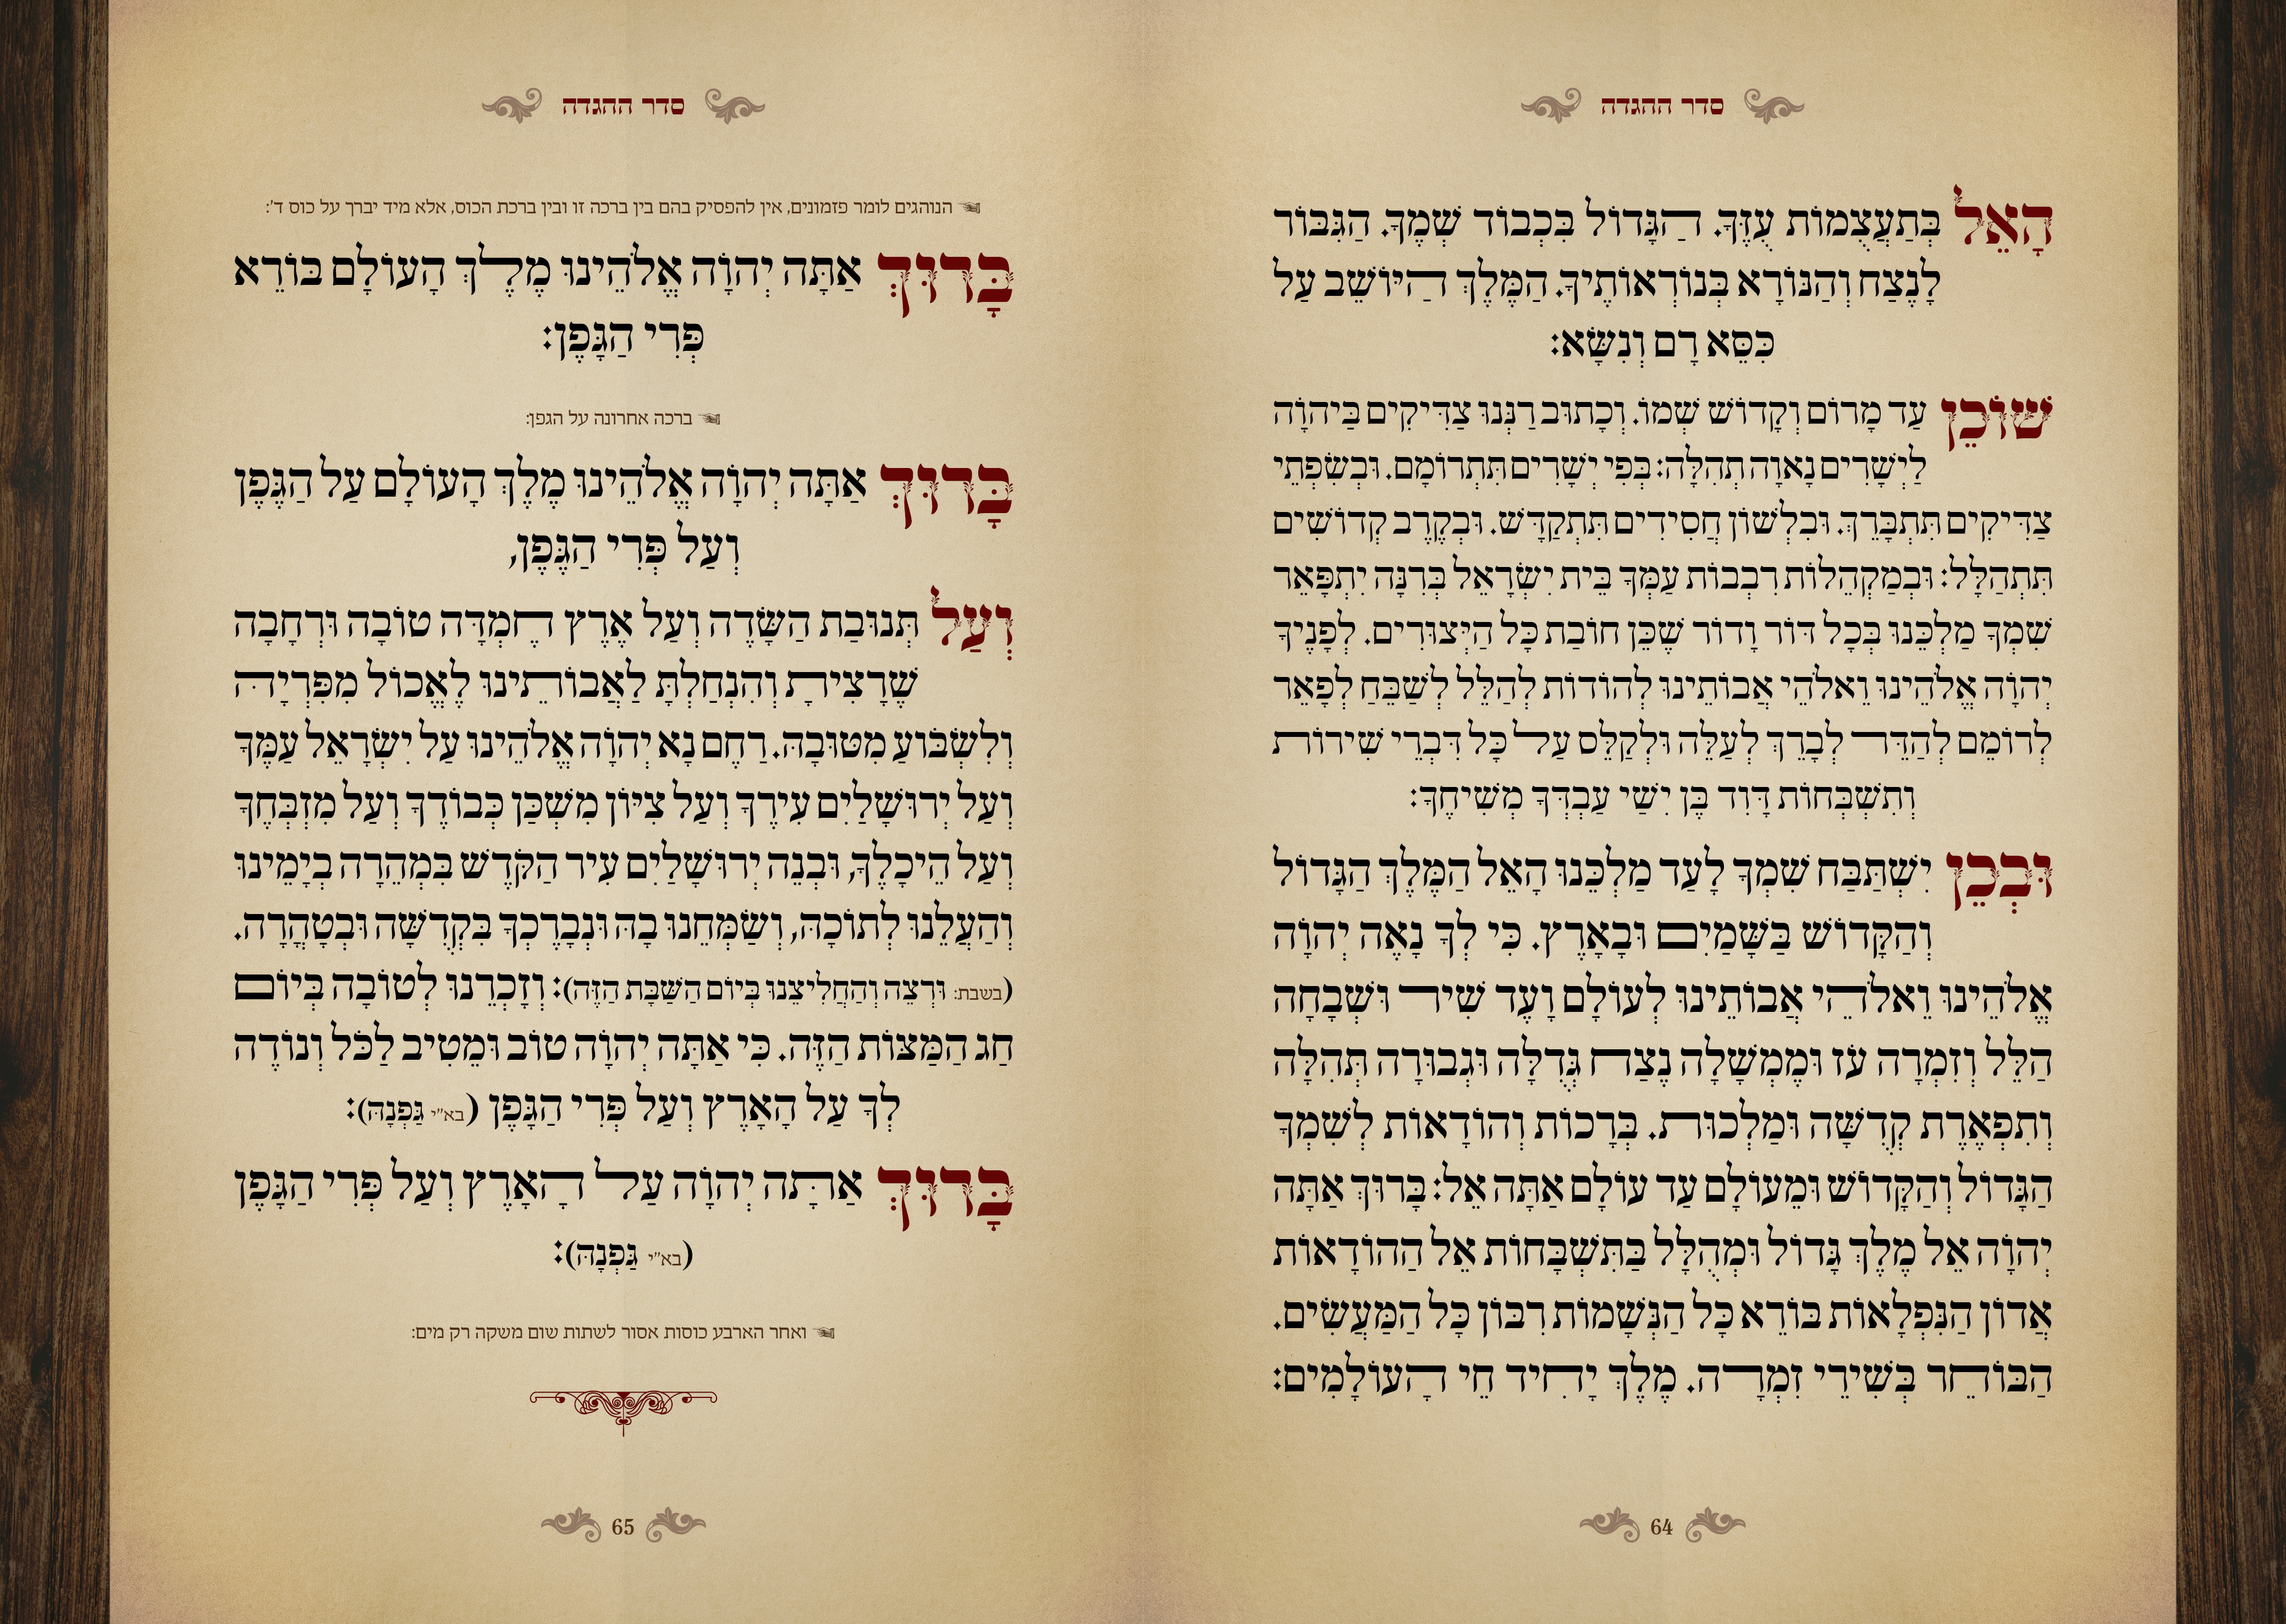 סדר ההגדה
הָאֵל בְּתַעֲצֻמוֹת עֻזֶּךָ. הַגָּדוֹל בִּכְבוֹד שְׁמֶךָ. הַגִּבּוֹר
לָנֶצַח וְהַנּוֹרָא בְּנוֹרְאוֹתֶיךָ. הַמֶּלֶךְ הַיּוֹשֵׁב עַל
כִּסֵּא רָם וְנִשָּׂא:
שׁוֹכֵן עַד מָרוֹם וְקָדוֹשׁ שְׁמוֹ. וְכָתוּב רַנְּנוּ צַדִּיקִים בַּיהוָֹה
לַיְשָׁרִים נָאוָה תְהִלָּה: בְּפִי יְשָׁרִים תִּתְרוֹמָם. וּבְשִׂפְתֵי
צַדִּיקִים תִּתְבָּרֵךְ. וּבִלְשׁוֹן חֲסִידִים תִּתְקַדָּשׁ. וּבְקֶרֶב קְדוֹשִׁים
תִּתְהַלָּל: וּבְמַקְהֵלוֹת רִבְבוֹת עַמְּךָ בֵּית יִשְׂרָאֵל בְּרִנָּה יִתְפָּאֵר
שִׁמְךָ מַלְכֵּנוּ בְּכָל דּוֹר וָדוֹר שֶׁכֵּן חוֹבַת כָּל הַיְּצוּרִים. לְפָנֶיךָ
יְהוָֹה אֱלֹהֵינוּ וֵאלֹהֵי אֲבוֹתֵינוּ לְהוֹדוֹת לְהַלֵּל לְשַׁבֵּחַ לְפָאֵר
לְרוֹמֵם לְהַדֵּר לְבָרֵךְ לְעַלֵּה וּלְקַלֵּס עַל כָּל דִּבְרֵי שִׁירוֹת
וְתִשְׁבְּחוֹת דָּוִד בֶּן יִשַׁי עַבְדְּךָ מְשִׁיחֶךָ:
וּבְכֵן יִשְׁתַּבַּח שִׁמְךָ לָעַד מַלְכֵּנוּ הָאֵל הַמֶּלֶךְ הַגָּדוֹל
וְהַקָּדוֹשׁ בַּשָּׁמַיִם וּבָאָרֶץ. כִּי לְךָ נָאֶה יְהוָֹה
אֱלֹהֵינוּ וֵאלֹהֵי אֲבוֹתֵינוּ לְעוֹלָם וָעֶד שִׁיר וּשְׁבָחָה
הַלֵּל וְזִמְרָה עֹז וּמֶמְשָׁלָה נֶצַח גְּדֻלָּה וּגְבוּרָה תְּהִלָּה
וְתִפְאֶרֶת קְדֻשָּׁה וּמַלְכוּת. בְּרָכוֹת וְהוֹדָאוֹת לְשִׁמְךָ
הַגָּדוֹל וְהַקָּדוֹשׁ וּמֵעוֹלָם עַד עוֹלָם אַתָּה אֵל: בָּרוּךְ אַתָּה
יְהוָֹה אֵל מֶלֶךְ גָּדוֹל וּמְהֻלָּל בַּתִּשְׁבָּחוֹת אֵל הַהוֹדָאוֹת
אֲדוֹן הַנִּפְלָאוֹת בּוֹרֵא כָּל הַנְּשָׁמוֹת רִבּוֹן כָּל הַמַּעֲשִׂים.
הַבּוֹחֵר בְּשִׁירֵי זִמְרָה. מֶלֶךְ יָחִיד חֵי הָעוֹלָמִים:
64
סדר ההגדה
הנוהגים לומר פזמונים, אין להפסיק בהם בין ברכה זו ובין ברכת הכוס, אלא מיד יברך על כוס ד':
בָּרוּךְ אַתָּה יְהוָֹה אֱלֹהֵינוּ מֶלֶךְ הָעוֹלָם בּוֹרֵא
פְּרִי הַגָּפֶן:
ברכה אחרונה על הגפן:
בָּרוּךְ אַתָּה יְהוָֹה אֱלֹהֵינוּ מֶלֶךְ הָעוֹלָם עַל הַגֶּפֶן
וְעַל פְּרִי הַגֶּפֶן,
וְעַל תְּנוּבַת הַשָּׂדֶה וְעַל אֶרֶץ חֶמְדָּה טוֹבָה וּרְחָבָה
שֶׁרָצִיתָ וְהִנְחַלְתָּ לַאֲבוֹתֵינוּ לֶאֱכוֹל מִפִּרְיָהּ
וְלִשְׂבּוֹעַ מִטּוּבָהּ. רַחֶם נָא יְהוָֹה אֱלֹהֵינוּ עַל יִשְׂרָאֵל עַמֶּךָ
וְעַל יְרוּשָׁלַיִם עִירֶךָ וְעַל צִיּוֹן מִשְׁכַּן כְּבוֹדֶךָ וְעַל מִזְבְּחֶךָ
וְעַל הֵיכָלֶךָ, וּבְנֵה יְרוּשָׁלַיִם עִיר הַקֹּדֶשׁ בִּמְהֵרָה בְיָמֵינוּ
וְהַעֲלֵנוּ לְתוֹכָהּ, וְשַׂמְּחֵנוּ בָהּ וּנְבָרֶכְךָ בִּקְדֻשָּׁה וּבְטָהֳרָה.
(בשבת: וּרְצֵה וְהַחֲלִיצֵנוּ בְּיוֹם הַשַּׁבָּת הַזֶּה): וְזָכְרֵנוּ לְטוֹבָה בְּיוֹם
חַג הַמַּצּוֹת הַזֶּה. כִּי אַתָּה יְהוָֹה טוֹב וּמֵטִיב לַכֹּל וְנוֹדֶה
לְךָ עַל הָאָרֶץ וְעַל פְּרִי הַגָּפֶן (בא"י גַּפְנָהּ):
בָּרוּךְ אַתָּה יְהוָֹה עַל הָאָרֶץ וְעַל פְּרִי הַגָּפֶן
(בא"י גַּפְנָהּ):
ואחר הארבע כוסות אסור לשתות שום משקה רק מים:
65